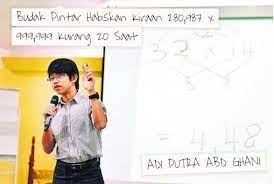 Budak Pintar Habiskan Kiraan 280,987 x
999,999 Kurang 20 Saat
32 x 14
= 4,48
ADI PUTRA ABD GHANI